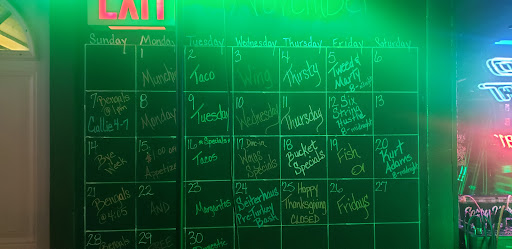 EXIT
November
Sunday Monday Tuesday Wednesday Thursday Friday Saturday
1 2 3 4 5 6
Munch Taco Wing Thirsty Tweed & Marty
7 Bengals @ 1pm
8 9 10 11 12 13
Monday Tuesday Wednesday Thursday Six String Hustle
8-midnight
14 15 16 17 18 19 20
Bye Week $1.00 off Appetizer Specials Tacos Dine-in Wings Specials Bucket Specials Fish Or Kurt Adams
8-midnight
21 22 23 24 25 26 27
Bengals @ 4:05 AND Margaritas Pre-Turkey Bash Happy Thanksgiving CLOSED Fridays
28 30
Bengals